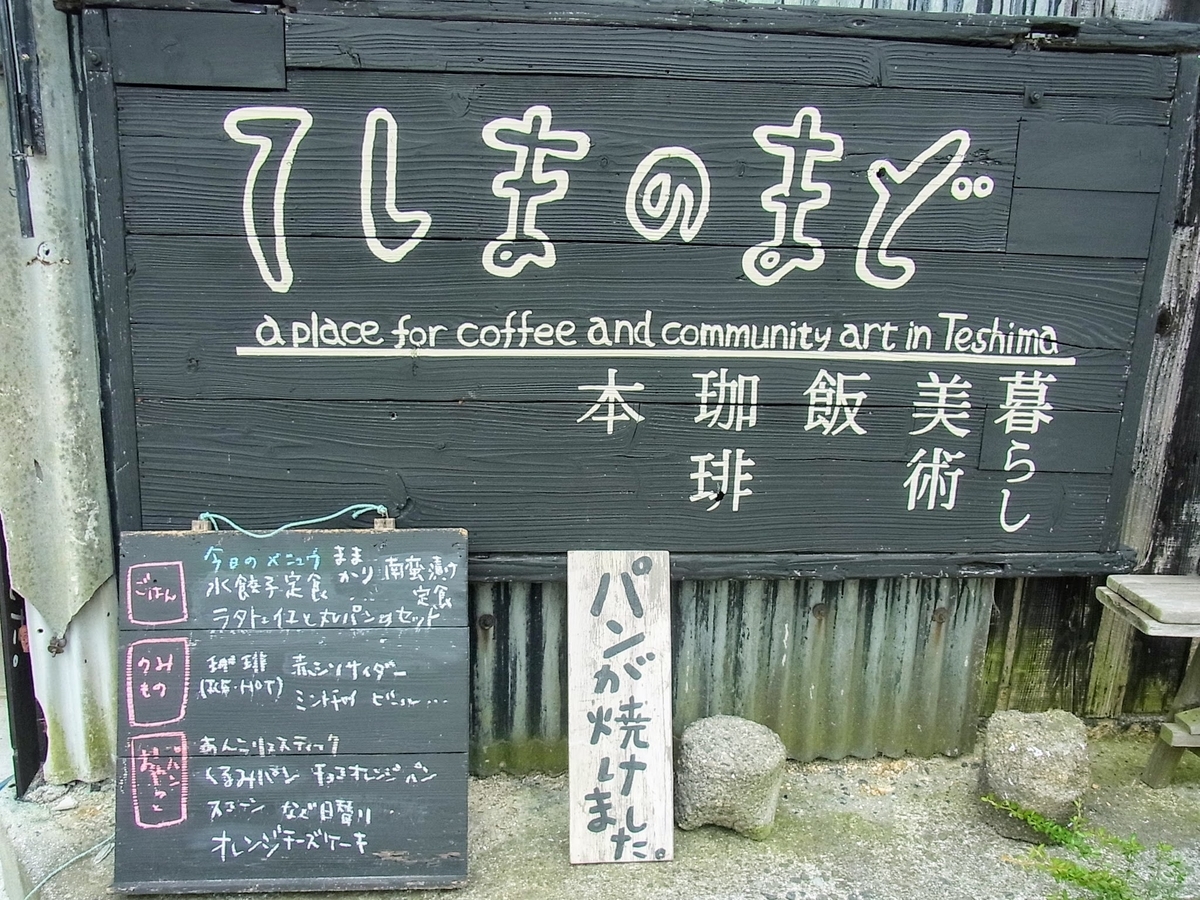 てしまのまど
a place for coffee and community art in Teshima
暮らし
美術
飯
珈琲
本
今日のメニュウ
ごはん
ままかり南蛮漬け定食
水餃子定食
ラタトゥイユと丸パンのセット
のみもの
珈琲 赤シソサイダー
HOT
ミントチャイ ビール…
パン
くるみパン チョコオレンジパン
スコーン など日替り
オレンジチーズケーキ
パンが焼けました。